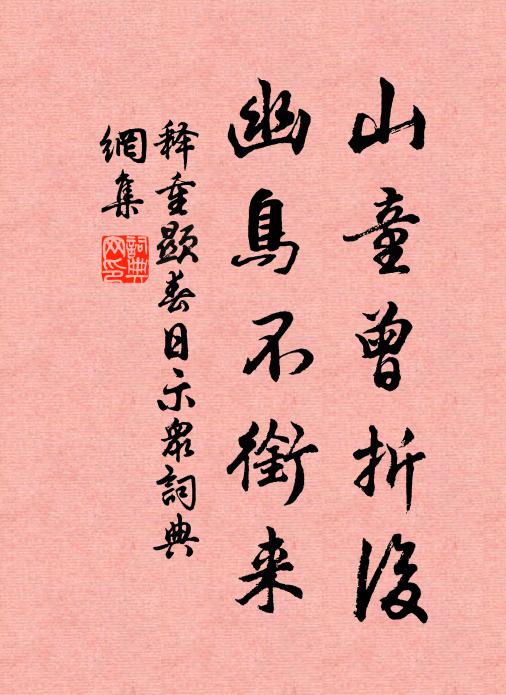 山童曾折後
幽鳥不銜来
释重顯春日示衆詞典
網集
詞典网印